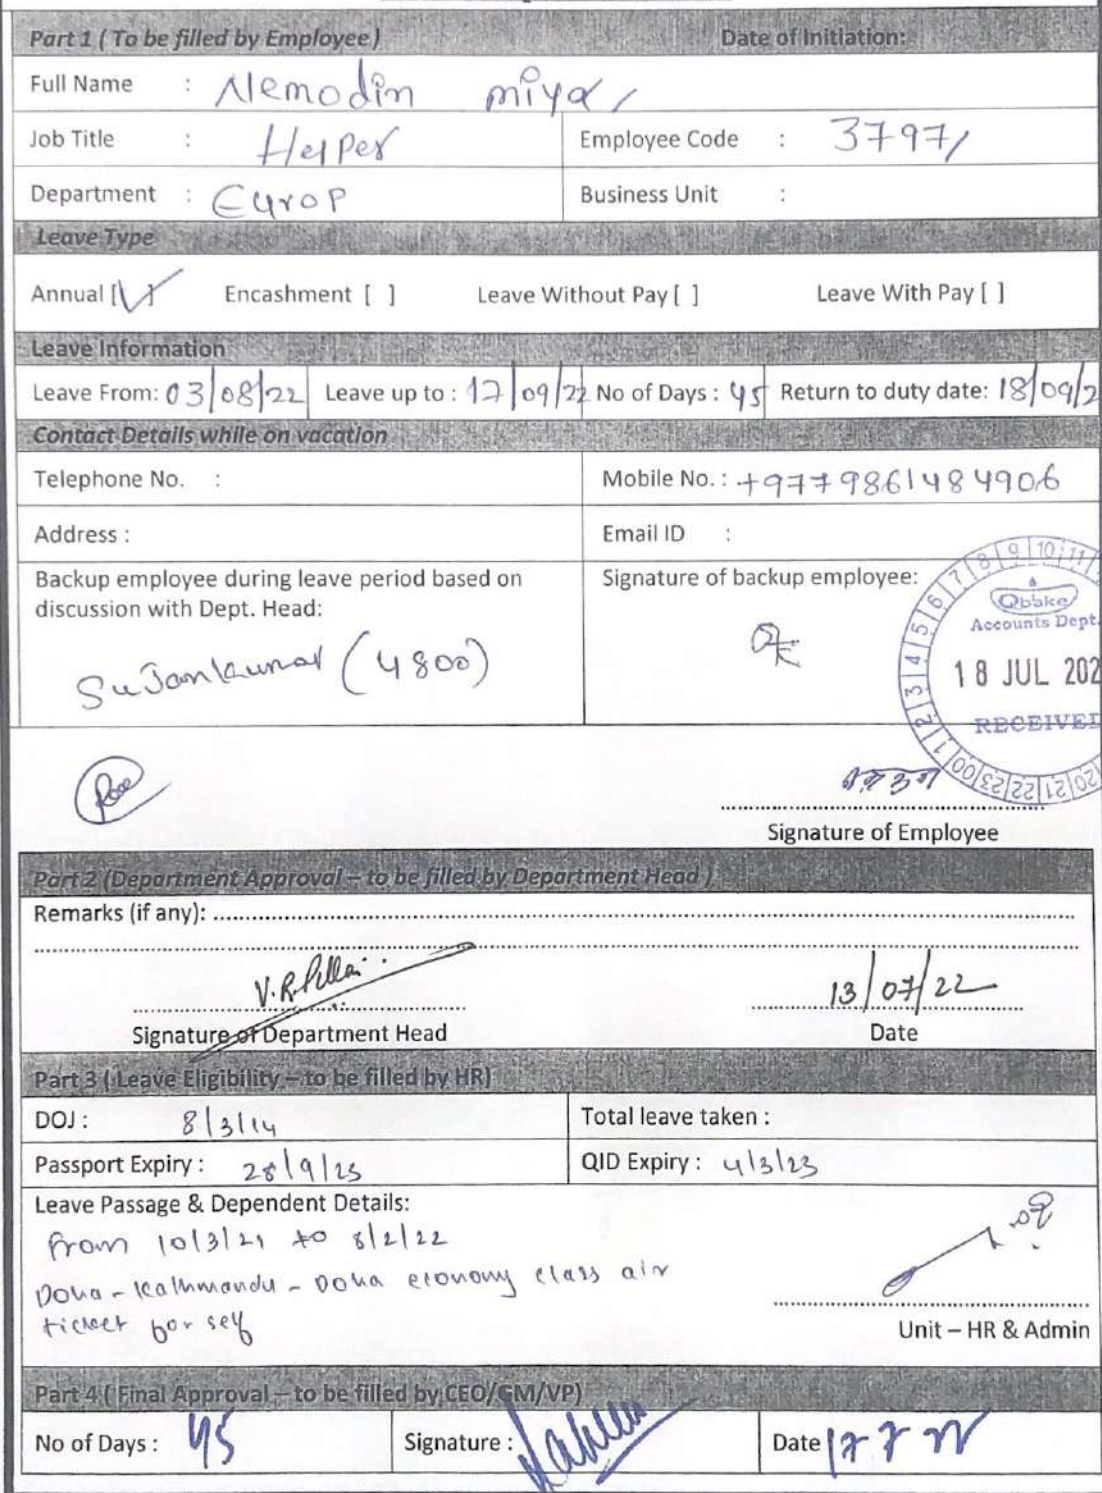 Part 1 ( To be filled by Employee) Date of Initiation:
Full Name : Nemodin miya
Job Title : Helper Employee Code : 3797
Department : Europ Business Unit :
Leave Type
Annual [✓] Encashment [ ] Leave Without Pay [ ] Leave With Pay [ ]
Leave Information
Leave From: 03/08/22 Leave up to : 17/09/22 No of Days : 45 Return to duty date: 18/09/2
Contact Details while on vacation
Telephone No. : Mobile No. : +977 9861484906
Address : Email ID :
Backup employee during leave period based on discussion with Dept. Head:
Signature of backup employee:
Sujankumar (4800)
Qbake
Accounts Dept.
18 JUL 202
RECEIVED
Signature of Employee
Part 2 (Department Approval – to be filled by Department Head )
Remarks (if any):
V.R.Pillai 13/07/22
Signature of Department Head Date
Part 3 ( Leave Eligibility – to be filled by HR)
DOJ : 8/3/14 Total leave taken :
Passport Expiry : 28/9/25 QID Expiry : 4/3/23
Leave Passage & Dependent Details:
From 10/3/21 to 8/2/22
Doha - Kathmandu - Doha economy class air
ticket for self
Unit – HR & Admin
Part 4 ( Final Approval – to be filled by CEO/GM/VP)
No of Days : 45 Signature : Date 17 7 22